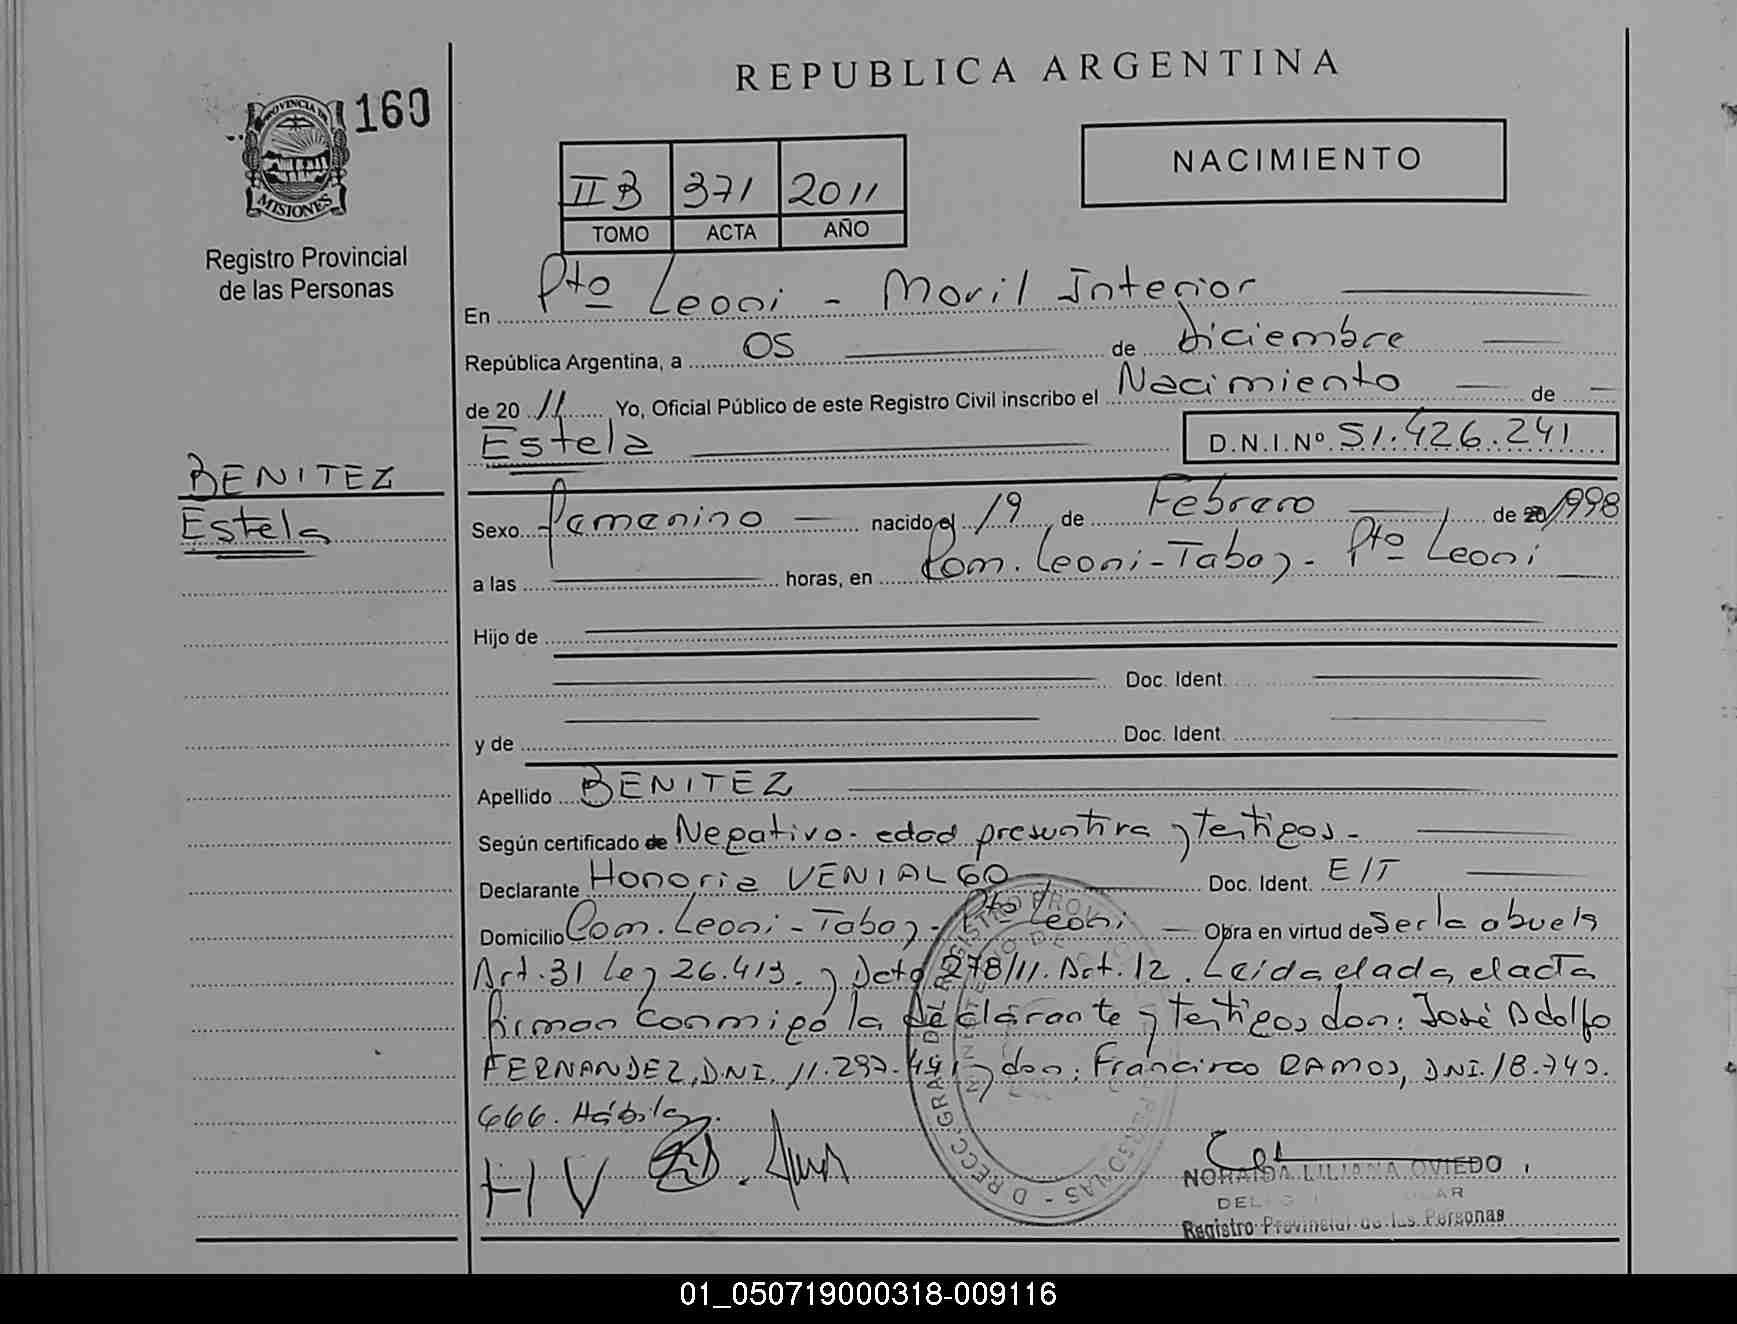 REPUBLICA ARGENTINA
PROVINCIA DE
MISIONES
160
NACIMIENTO
II B 371 2011
TOMO ACTA AÑO
Registro Provincial
de las Personas
En Pto Leoni - Moril Interior
República Argentina, a 05 de diciembre
de 2011 Yo, Oficial Público de este Registro Civil inscribo el Nacimiento de
Estela D.N.I.Nº 51.426.241
BENITEZ
Estela
Sexo Femenino nacido el 19 de Febrero de 20 1998
a las horas, en Com. Leoni - Tabay - Pto Leoni
Hijo de
Doc. Ident.
y de Doc. Ident.
Apellido BENITEZ
Según certificado de Negativo - edad presuntiva y testigos -
Declarante Honoria VENIALGO Doc. Ident. E/T
Domicilio Com. Leoni - Tabay - Pto Leoni Obra en virtud de ser la abuela
Art. 31 Ley 26.413. y Dcto 278/11. Art. 12. Leida e lada el acta
firman conmigo la declarante y testigos don: José Adolfo
FERNANDEZ, DNI. 11.297. y don: Francisco RAMOS, DNI. 18.740.
666. Hábiles.
H V
NORAIDA LILIANA OVIEDO
Registro Provincial de las Personas
01_050719000318-009116